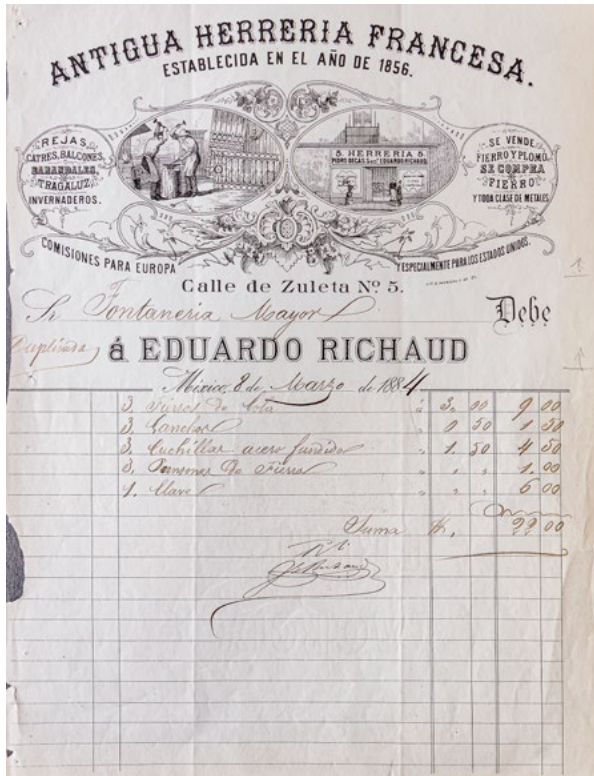 ANTIGUA HERRERIA FRANCESA.
ESTABLECIDA EN EL AÑO DE 1856.
REJAS,
CATRES, BALCONES,
BARANDALES,
TRAGALUZ
INVERNADEROS.
5. HERRERIA 5.
PEDRO DECAS EDUARDO RICHAUD.
SE VENDE
FIERRO Y PLOMO
SE COMPRA
FIERRO
Y TODA CLASE DE METALES
COMISIONES PARA EUROPA
Y ESPECIALMENTE PARA LOS ESTADOS UNIDOS.
Calle de Zuleta Nº 5.
Sr Fontaneria Mayor
Debe
Duplicada
á EDUARDO RICHAUD
México, 8 de Marzo de 1884
3. Fierros de Cola á 3. 00 9 00
3. Ganchos 0 50 1 50
3. Cuchillas acero fundido 1. 50 4 50
3. de Fierro 1. 00
1. Llave 6 00
Suma 22 00